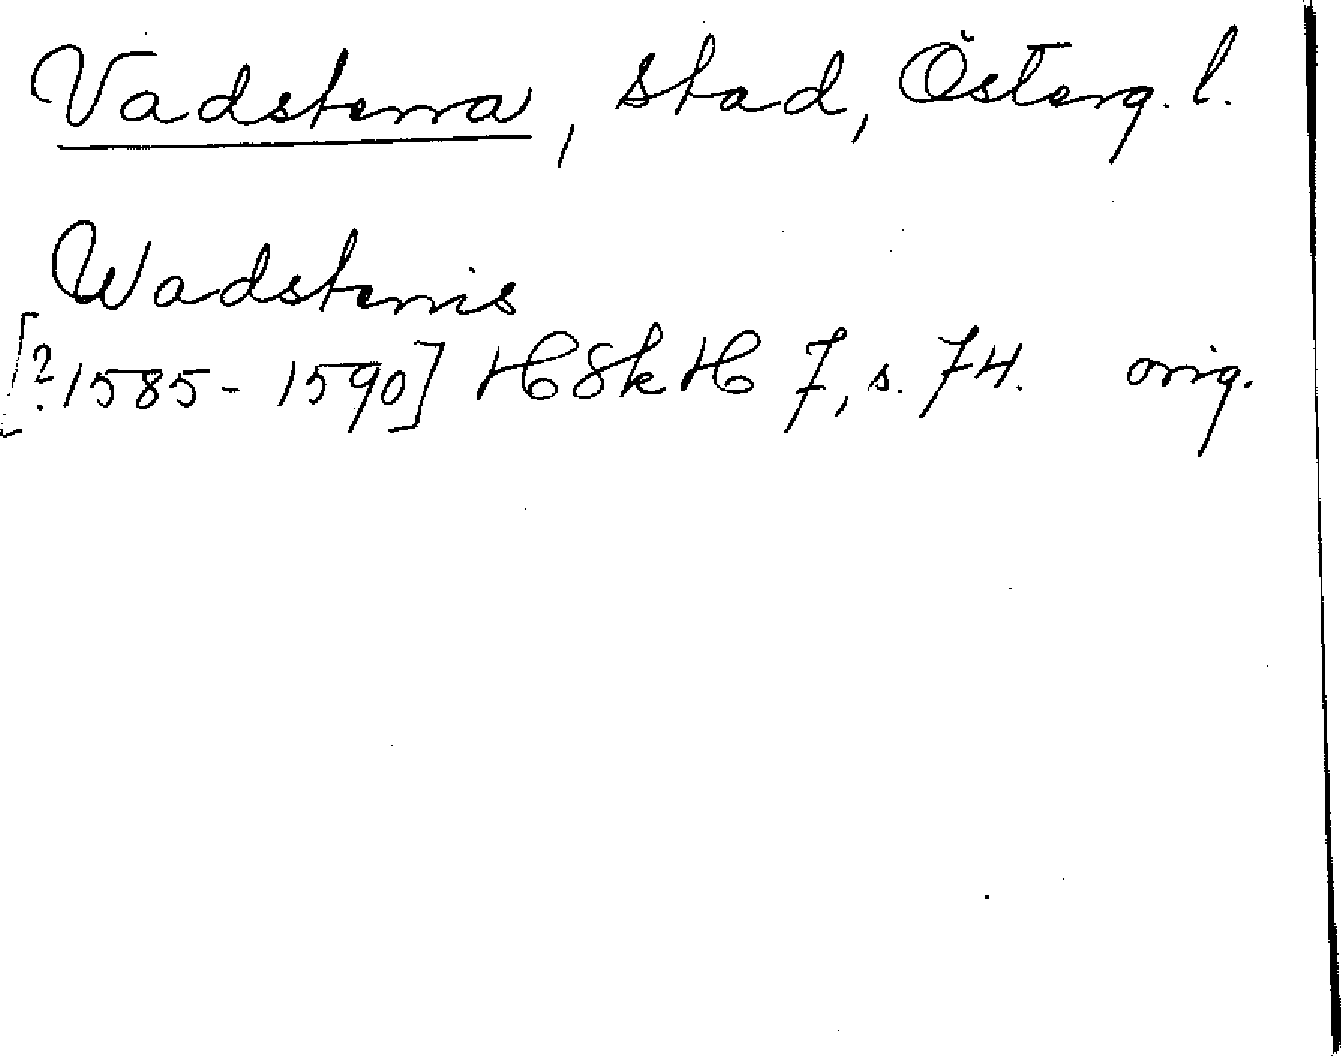 Vadstena, stad, Österg. l.
Wadstenis
[? 1585-1590] HSkH 7, s. 74. orig.